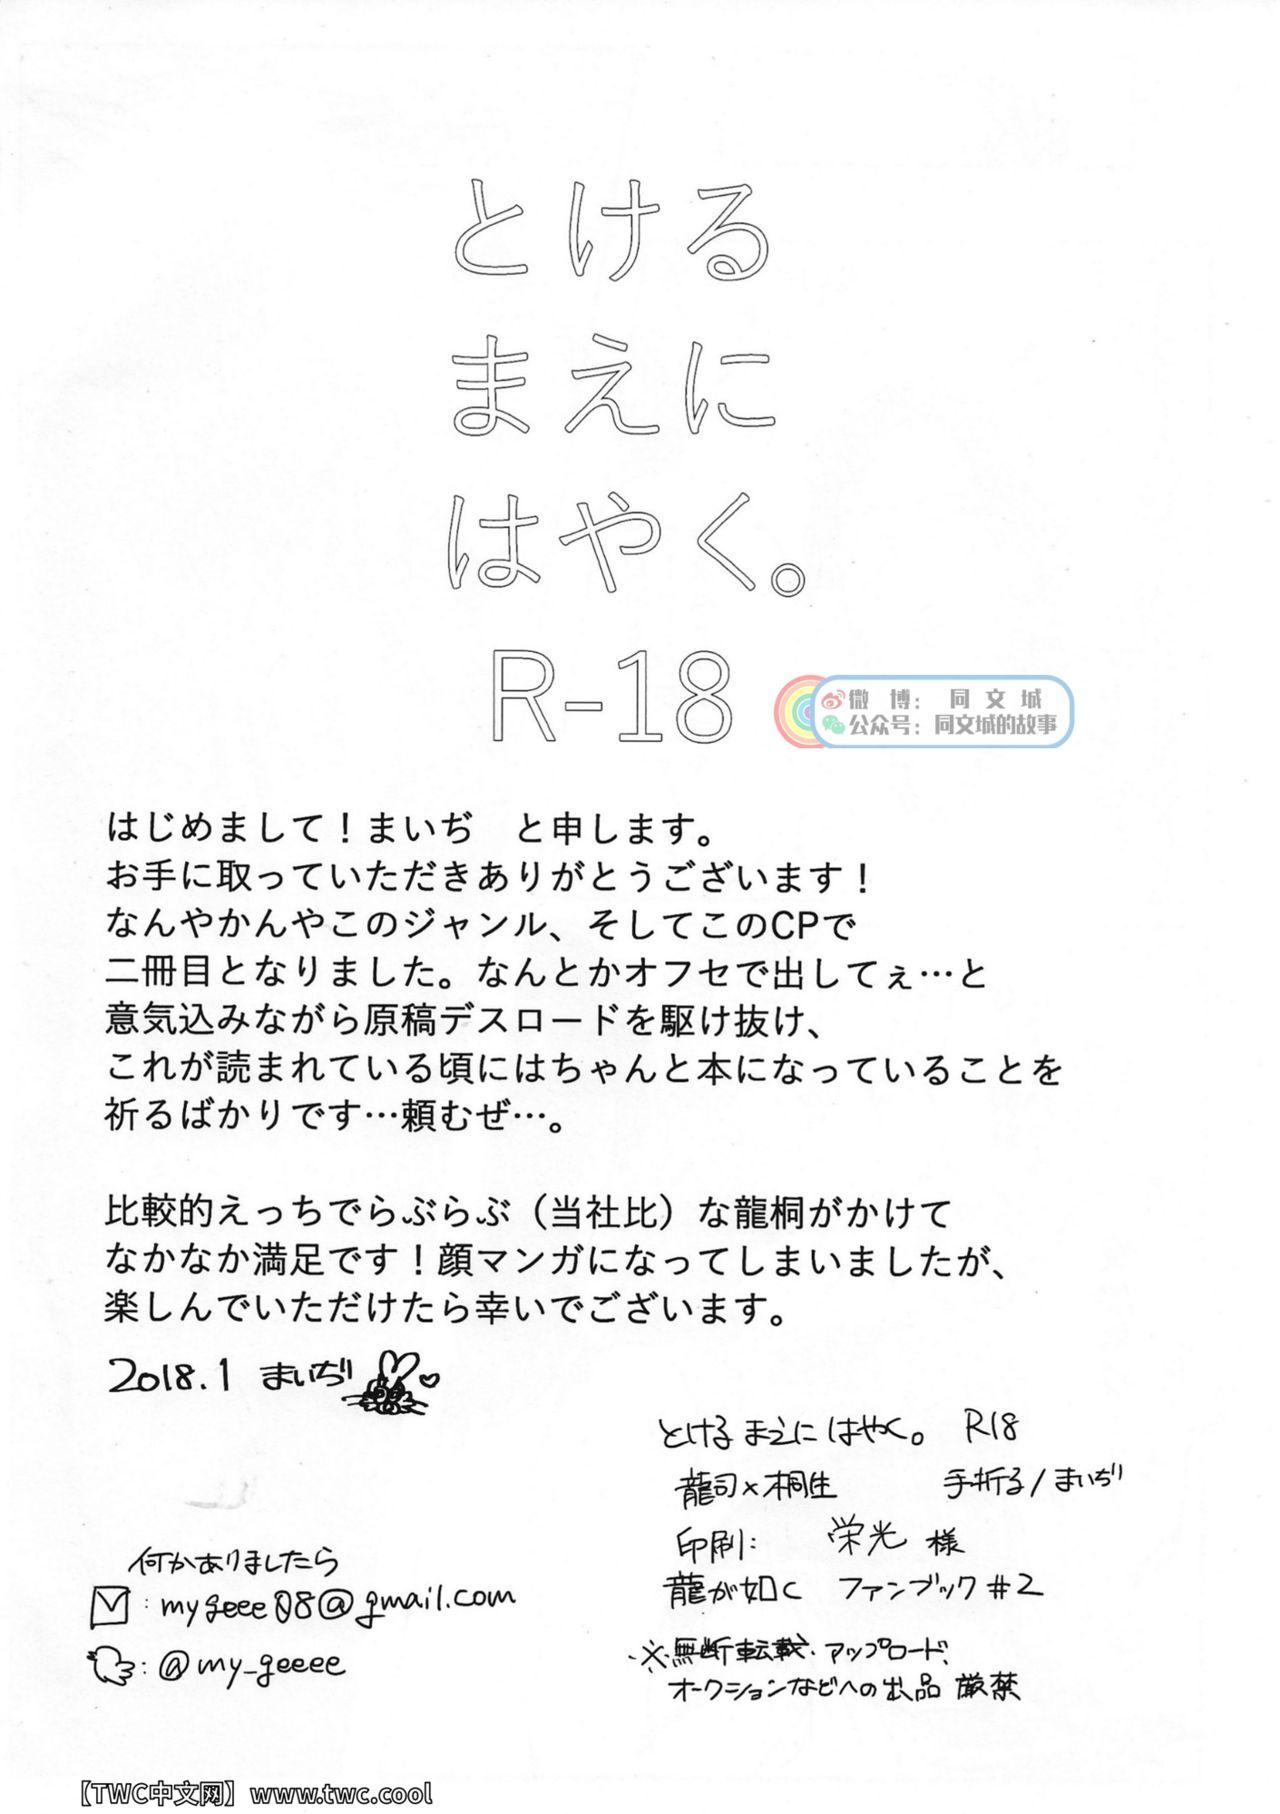 とける
まえに
はやく。
R-18
微博：同文城
公众号：同文城的故事
はじめまして！まいぢ　と申します。
お手に取っていただきありがとうございます！
なんやかんやこのジャンル、そしてこのCPで
二冊目となりました。なんとかオフセで出してぇ…と
意気込みながら原稿デスロードを駆け抜け、
これが読まれている頃にはちゃんと本になっていることを
祈るばかりです…頼むぜ…。
比較的えっちでらぶらぶ（当社比）な龍桐がかけて
なかなか満足です！顔マンガになってしまいましたが、
楽しんでいただけたら幸いでございます。
2018.1 まいぢ
とけるまえにはやく。 R18
龍司×桐生　手折る/まいぢ
印刷：栄光様
龍が如く ファンブック#2
※無断転載・アップロード、
オークションなどへの出品 厳禁
何かありましたら
:mygeee08@gmail.com
:@my_geeee
【TWC中文网】www.twc.cool